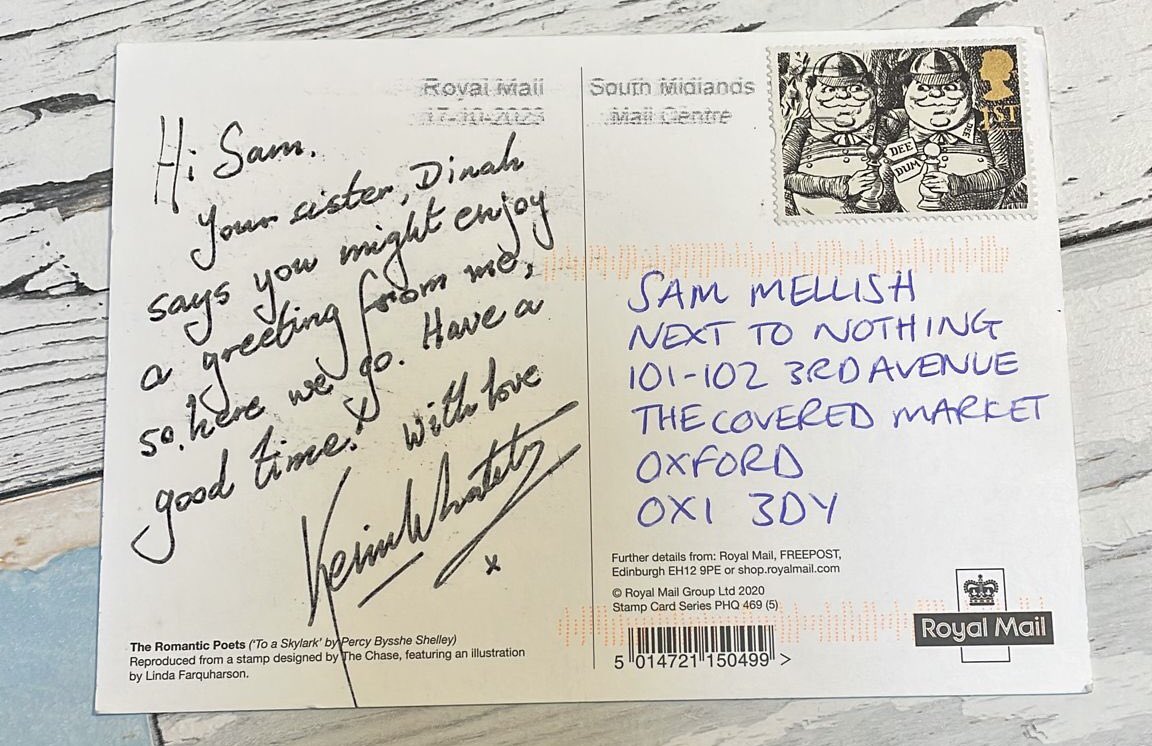 Royal Mail
17-10-2023
South Midlands
Mail Centre
1ST
DEE
DUM
Hi Sam.
Your sister, Dinah
says you might enjoy
a greeting from me,
so, here we go. Have a
good time! x
With love
Kevin Whately
x
SAM MELLISH
NEXT TO NOTHING
101-102 3RD AVENUE
THE COVERED MARKET
OXFORD
OX1 3DY
Further details from: Royal Mail, FREEPOST,
Edinburgh EH12 9PE or shop.royalmail.com
© Royal Mail Group Ltd 2020
Stamp Card Series PHQ 469 (5)
5 014721 150499 >
Royal Mail
The Romantic Poets ('To a Skylark' by Percy Bysshe Shelley)
Reproduced from a stamp designed by The Chase, featuring an illustration
by Linda Farquharson.